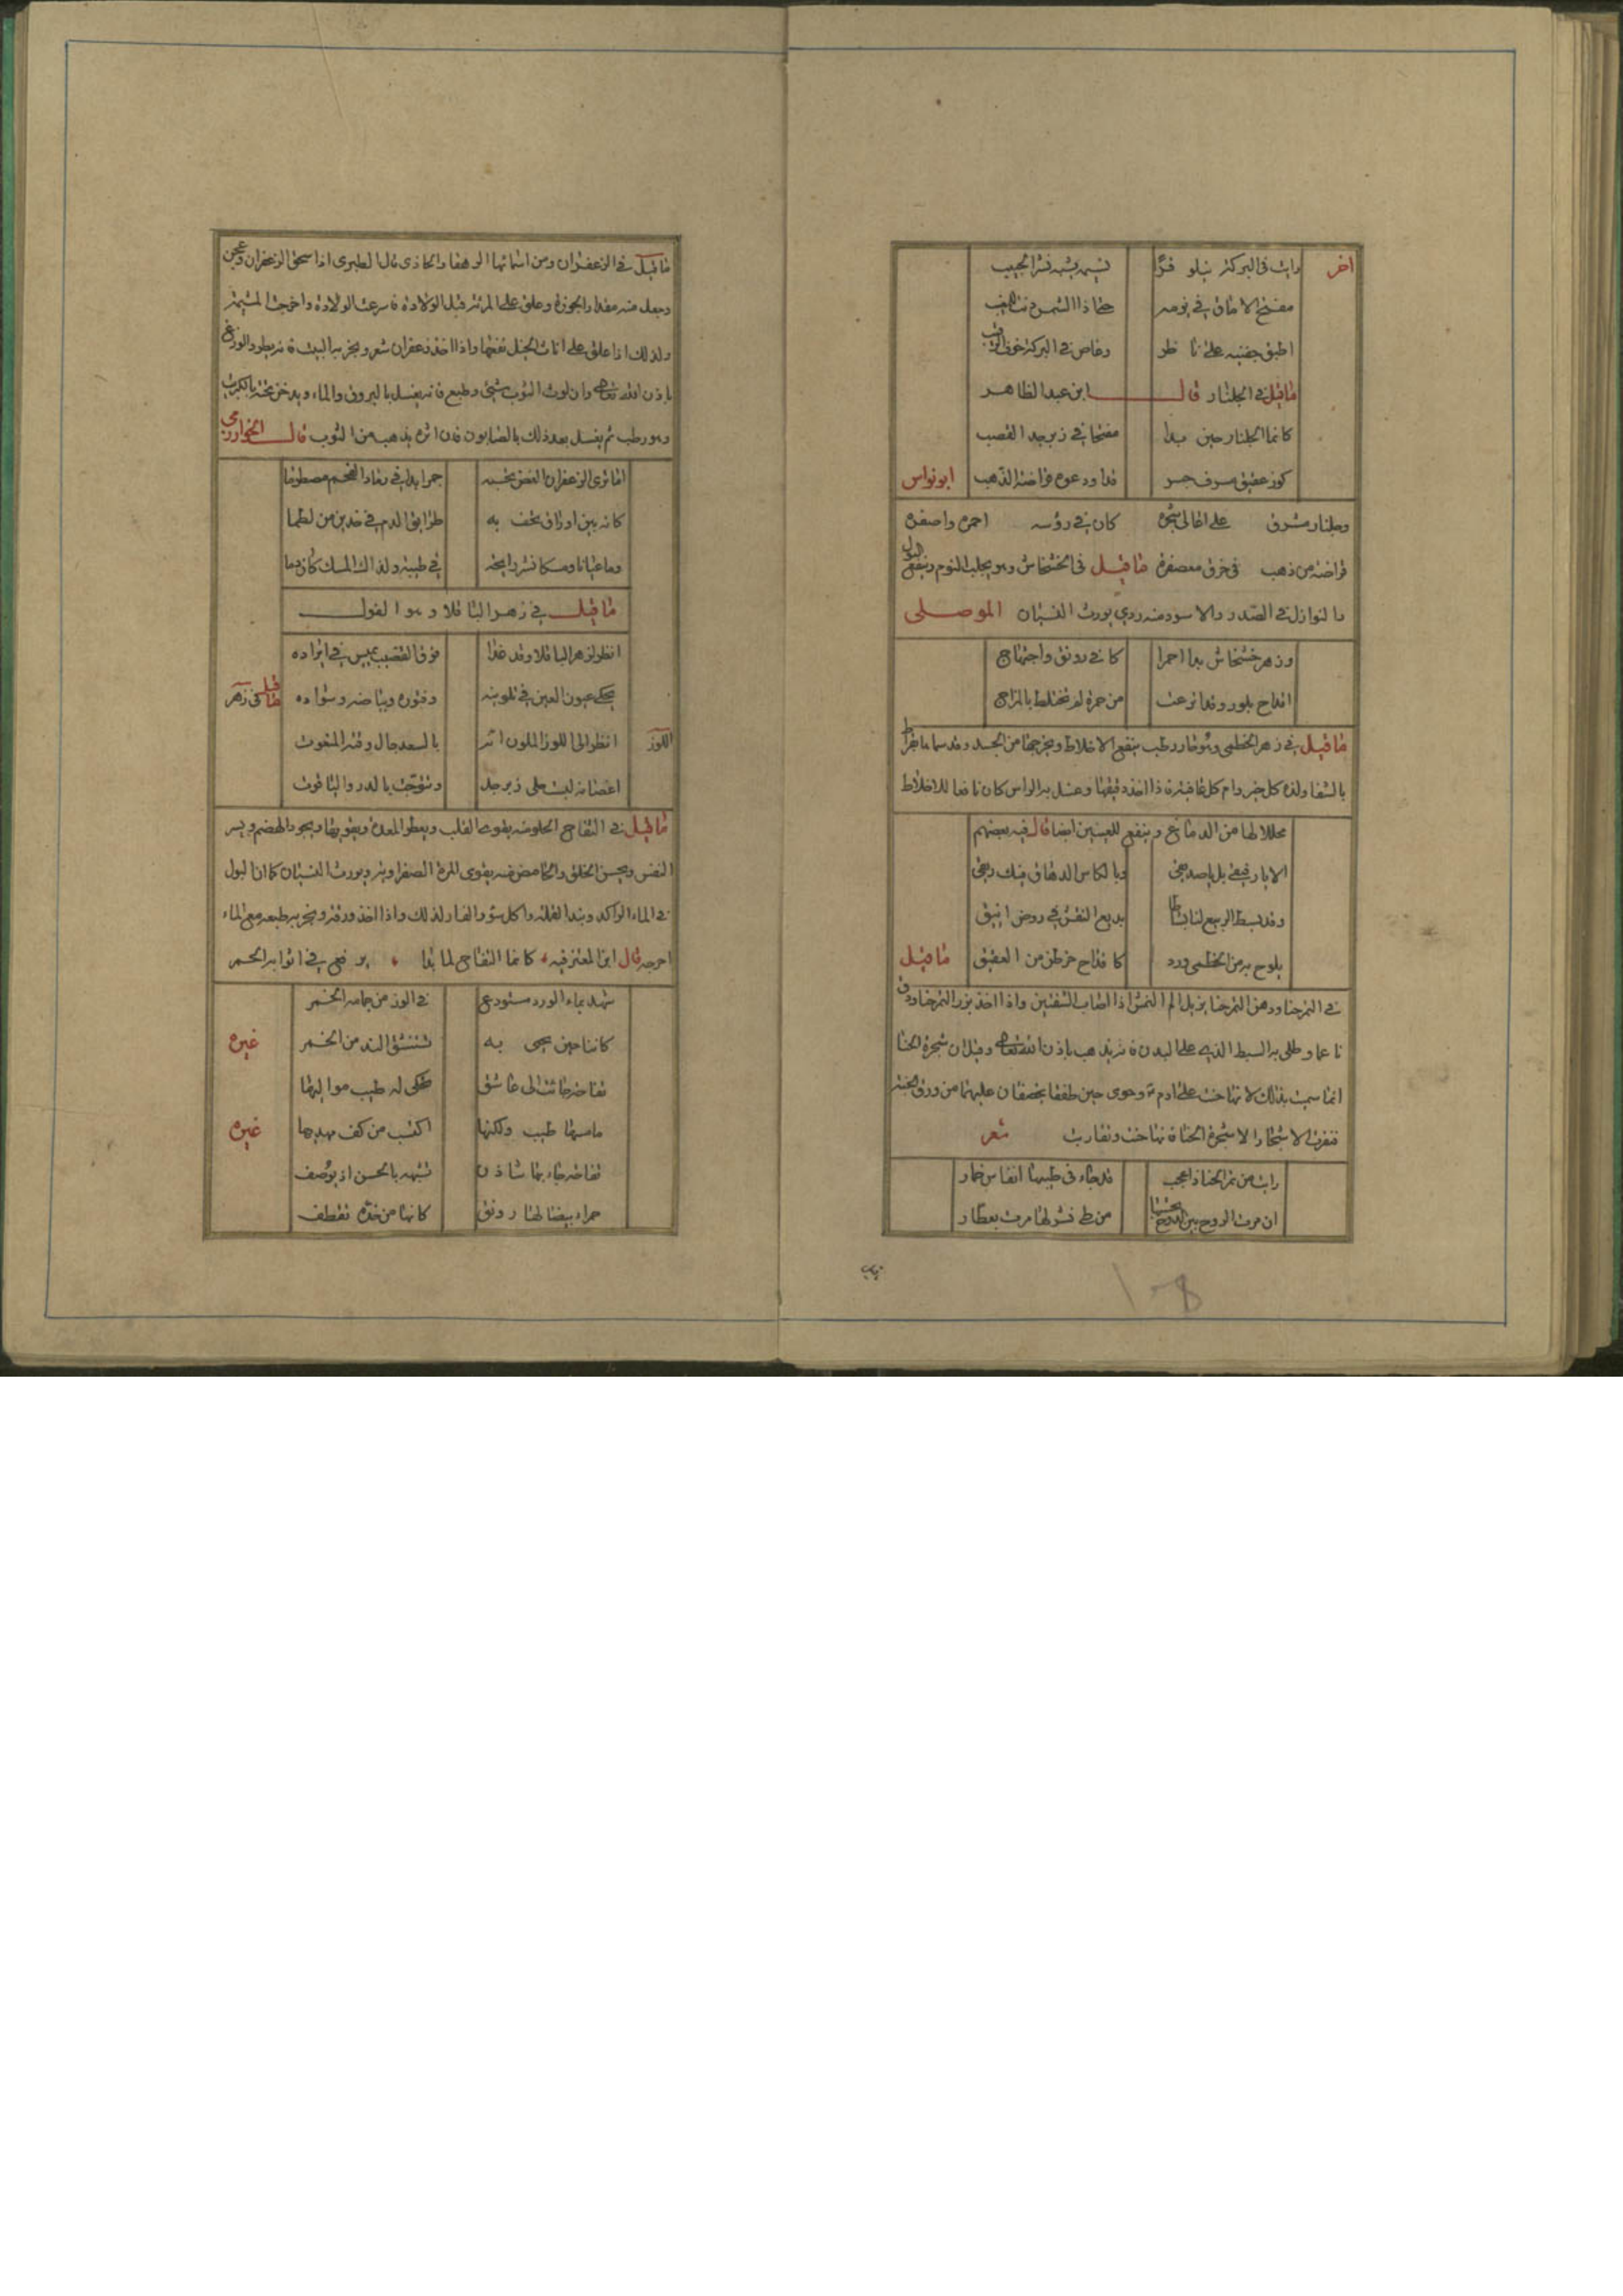 اخر رايت في البركة نيلوفرا نسيمه يشبه نشر الحبيب
مفتح الاماق في يومه حتى اذا الشمس دنت للمغيب
اطبق جفنيه على ناظر وغاص في البركة خوف الرقيب
ما قيل في الجلنار قال ابن عبد الظاهر
كانما الجلنار حين بدا مفتحا في زبرجد القصب
كوز عقيق قد اودعوه قراضة الذهب ابو نواس
وجلنار مشرق على اعالي شجره كان في رؤسه احمره واصفره
قراضة من ذهب في خرق معصفره ما قيل في الخشخاش وهو يجلب النوم وينفع
والنوازل في الصدر والاسود منه ردي يورث النسيان الموصلي
وزهر خشخاش بدا احمرا كان في رونق وابتهاج
اقداح بلور وقد اترعت من خمرة لم تختلط بالمزاج
ما قيل في زهر الخطمي وهو بارد رطب ينفع الاخلاط ويخرجها من الجسد وقد سماه بقراط
بالشفا ولذه كل خير وام كل عافية فاذا اخذ دقيقها وغسل به الراس كان نافعا للاخلاط
محللا لها من الدماغ وينفع للعينين ايضا قال فيه بعضهم
الا يا رفيقي بل يا صديقي وبالكاس الدهاق فبك ريقي
وقد بسط الربيع لنا بساطا بديع النقش في روض انيق
يلوح به من الخطمي ورد كاقداح خرطن من العقيق ما قيل
في التمرحنا ودهن التمرحنا يزيل الم النمش اذا اصاب الشفتين واذا اخذ بزر التمرحنا ودق
ناعما وطلي به البدن فانه يذهب باذن الله تعالى وقيل ان شجرة الحنا
انما سميت بذلك لانها حنت على ادم وحوى حين طفقا يخصفان عليهما من ورق الجنة
فنفرت الاشجار الا شجرة الحنا فانها حنت وتقاربت شعر
رايت من تمر الحنا ذا عجب قد جاء في طيبها انفاس خمار
ان مرت الروح بين الدوح من طي نشر لها مرت بعطار
ما قيل في الزعفران ومن اسمائها الرهقا والجادي قال الطبري اذا سحق الزعفران وعجن
وجعل منه مقدار الجوزة وعلق على المرئة قبل الولادة فاسرعت الولادة واخرجت المشيمة
وكذلك اذا علق على اناث الخيل نفعها واذا اخذ زعفران شعر وبخر به البيت فانه يطرد الوزغ
باذن الله تعالى وان لوث الثوب شيئ وطبع فانه يغسل بالبورق والماء ويدخن تحته بالكبريت
وهو رطب ثم يغسل بعد ذلك بالصابون فان اثره يذهب من الثوب قال الخوارزمي
اما ترى الزعفران الغض تحسبه جمرا بدا في رماد الفحم مضطرما
كانه بين اوراق تحف به طرايق الدم في خدين من لطما
دما عيانا ومسكا نشر رايحة في طيبه ولذاك المسك كان دما
ما قيل في زهر الباقلا وهو الفول
انظر لزهر الباقلا وقد غدا فوق القضيب يميس في ابراده
يحكي عيون العين في تلوينه وفتوره وبياضه وسواده ما قيل في زهر
اللوز انظر الى اللوز الملون انه بالسعد حال وقته المنعوت
اغصانه لبست حلى زبرجد وتتوجت بالدر والياقوت
ما قيل في التفاح الحلو منه يقوي القلب ويعطر المعدة ويقويها ويجود الهضم ويسر
النفس ويحسن الخلق والحامض منه يقوي المرة الصفراوية ويورث النسيان كما ان البول
في الماء الراكد ونبذ القملة واكل سؤر الفار لذلك واذا اخذ ورقه وبخر به طبعه مع الماء
اخرجه قال ابن المعتز فيه كانما التفاح لما بدا يرفل في اثوابه الحمر
شهد بماء الورد مستودع في اكر من جامد الخمر
كاننا حين يحيى به نستنشق الند من الخمر غيره
تفاحة جائت الى عاشق تحكي له طيب مواليها
ما مسها طيب ولكنها اكتسبت من كف مهديها غيره
تفاحة جاء بها شادن تشبهه بالحسن اذ يوصف
حمراء بيضا لها رونق كانها من خده تقطف